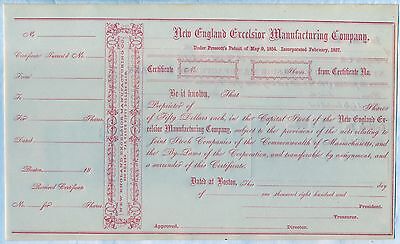 No
Certificate Parent to No.
From
To
For Shares
Dated
Boston, 18
Received Certificate
No. for Shares
New England Excelsior Manufacturing Company.
Under Prescott's Patent of May 9, 1854. Incorporated February, 1857.
Certificate No. Shares from Certificate No.
Be it known, That
Proprietor of Shares
of Fifty Dollars each, in the Capital Stock of the New England Excelsior Manufacturing Company, subject to the provisions of the acts relating to
Joint Stock Companies of the Commonwealth of Massachusetts, and
the By-Laws of the Corporation, and transferable by assignment, and
a surrender of this Certificate.
Dated at Boston, This day
of one thousand eight hundred and
President.
Treasurer.
Approved. Director.